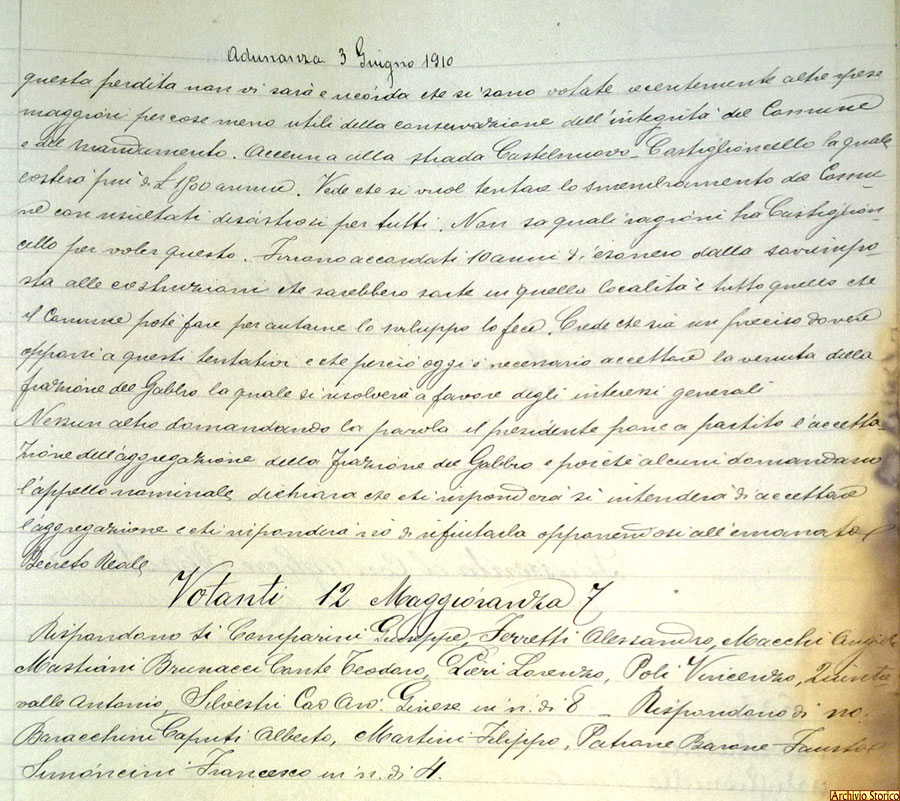 Adunanza 3 Giugno 1910
questa perdita non vi sarà e ricorda che si sono votate recentemente altre spese
maggiori per cose meno utili della conservazione dell'integrità del Comune
e del mandamento. Accenna alla strada Castelnuovo-Castiglioncello la quale
costerà più di £ 1500 annue. Vede che si vuol tentare lo smembramento del Comu-
ne con risultati disastrosi per tutti. Non sa quali ragioni ha Castiglion-
cello per voler questo. Furono accordati 10 anni di esonero dalla sovrimpo
sta alle costruzioni che sarebbero sorte in quella località e tutto quello che
il Comune poté fare per aiutarne lo sviluppo lo fece. Crede che sia un preciso dovere
opporsi a questi tentativi e che perciò oggi è necessario accettare la venuta della
frazione del Gabbro la quale si risolverà a favore degli interessi generali
Nessun altro domandando la parola il presidente pone a partito l'accetta
zione dell'aggregazione della frazione del Gabbro e poiché alcuni domandano
l'appello nominale dichiara che chi risponderà si intenderà di accettare
l'aggregazione e chi risponderà no di rifiutarla opponendosi all'emanato
Decreto Reale
Votanti 12 Maggioranza 7
Rispondono si Comparini Giuseppe, Ferretti Alessandro, Macchi Angiolo
Mastiani Brunacci Conte Teodoro, Pieri Lorenzo, Poli Vincenzo, Quinta
valle Antonio, Silvestri Cav Avv. Ginese in n. di 8 _ Rispondono di no.
Baracchini Caputi Alberto, Martini Filippo, Patrone Barone Fausto
Simoncini Francesco in n. di 4.
Archivio Storico